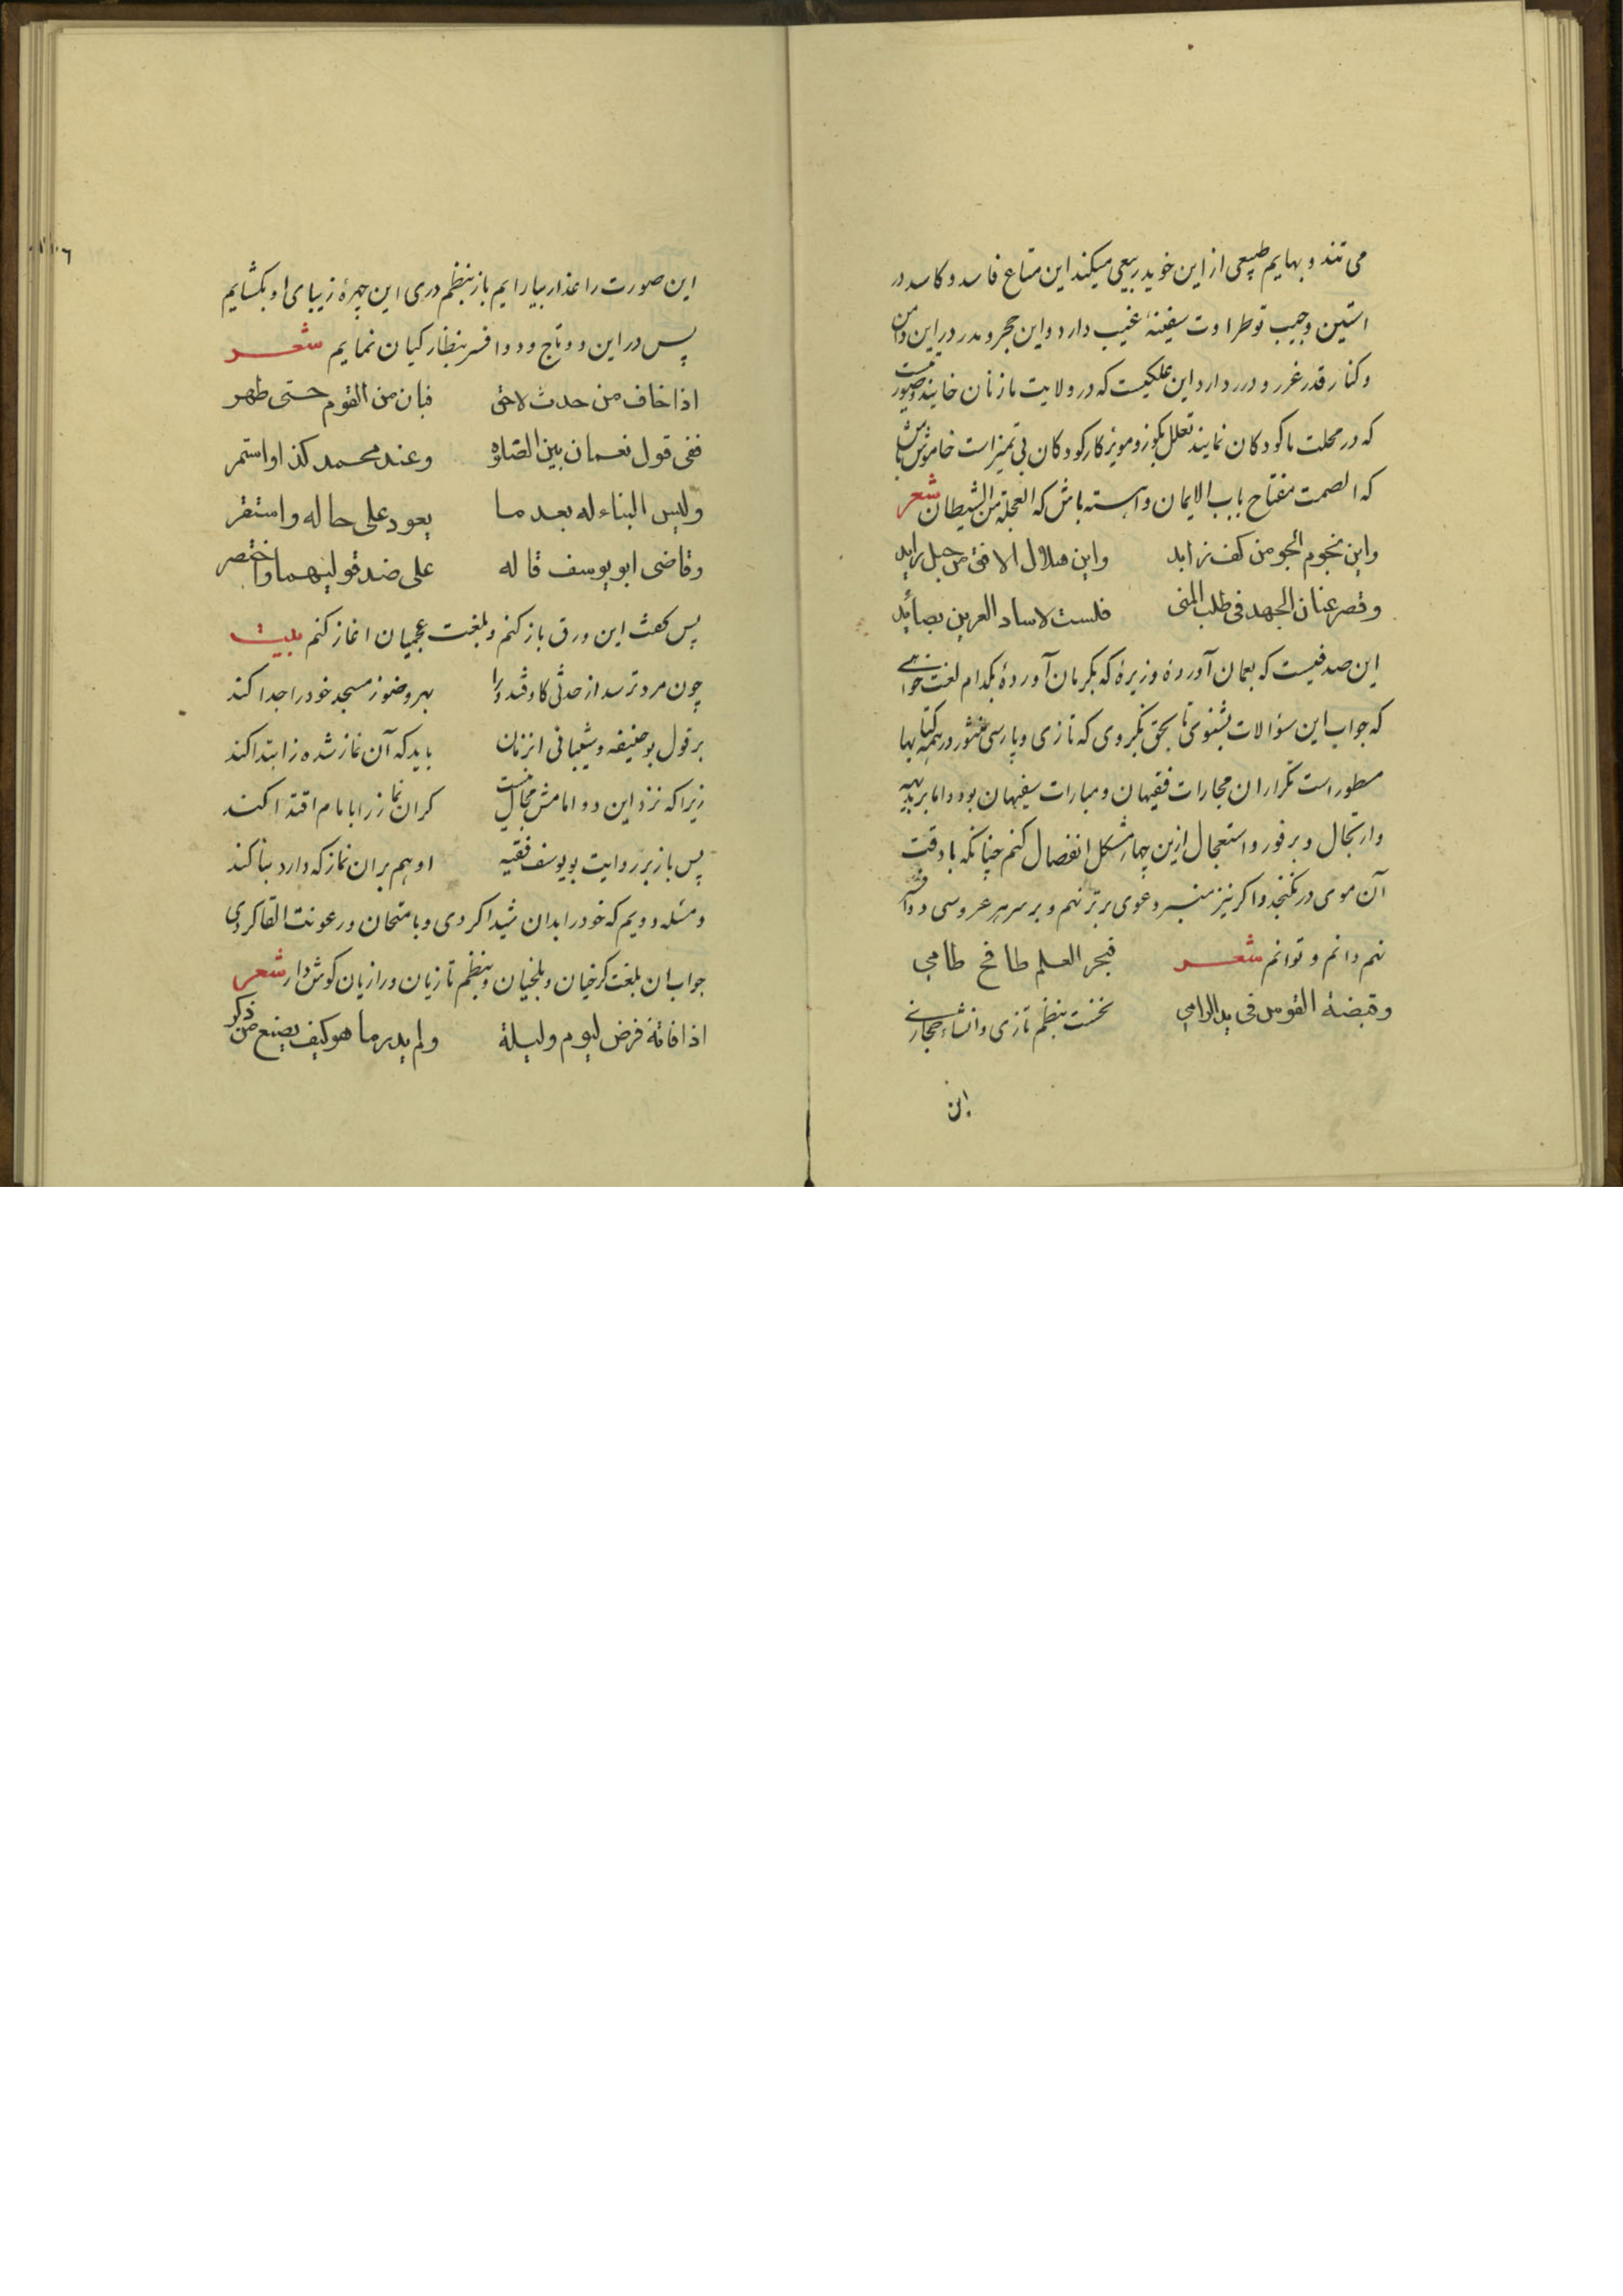 می تند و بهایم طبیعی از این خوید ربیعی میکند این متاع فاسد و کاسد در
استین و جیب تو طراوت سفینهٔ غیب دارد و این حجر و مدر در این دامن
و کنار قدر غرر و درر دارد این علکیست که در ولایت ما زنان خایند و
که در محلت ما کودکان نمایند تعلل بکوز و مویز کار کودکان بی تمیز است خاموش باش
که الصمت مفتاح باب الایمان و اهسته باش که العجلة من الشیطان شعر
واین نجوم الجو من کف زاید
واین هلال الافق من حبل راید
وقصر عنان الجهد فی طلب المنی
فلست لاساد العرین بصائد
این صدفیست که بعمان آوردهٔ و زیرهٔ که بکرمان آوردهٔ بکدام لغت خواهی
که جواب این سؤالات بشنوی تا بحق بگروی که تازی و پارسی منثور در همه کتابها
مسطور است تکرار ان مجارات فقیهان و مبارات سفیهان بود و اما بر بدیهه
وارتجال و بر فور و استعجال ازین چهار مشکل انفصال کنم چنانکه با دقت
آن موی در نکنجد و اکر نیز منبر دعوی برتر نهم و بر سر هر عروسی دو افسر
نهم دانم و توانم شعر
فبحر العلم طافح طامی
وقبضة القوس فی ید الرامی
نخست بنظم تازی و انشاء حجازی
این
این صورت را عذار بیارایم باز بنظم دری این چهرهٔ زیبای او بکشایم
پس در این دو تاج و دو افسر بنظار کیان نمایم شعر
اذا خاف من حدث لاحق
فبان من القوم حتی طهر
ففی قول نعمان بین الصلوة
وعند محمد کذا واستمر
ولیس البناء له بعد ما
یعود علی حاله واستقر
وقاضی ابویوسف قاله
علی ضد قولیهما واختصر
پس کفت این ورق باز کنم و بلغت عجمیان اغاز کنم بیت
چون مرد ترسد از حدثی کاوفتد ورا
بهر وضو ز مسجد خود را جدا کند
بر قول بوحنیفه و شیبانی انزمان
باید که آن نماز شده ز ابتدا کند
زیرا که نزد این دو امامش مجال نیست
کر ان نماز را بامام اقتدا کند
پس باز بر روایت بویوسف فقیه
او هم بر ان نماز که دارد بنا کند
و مسئله دویم که خود را بدان شیدا کردی و بامتحان و رعونت القا کردی
جواب ان بلغت کرخیان و بلخیان و بنظم تازیان و رازیان کوش دار شعر
اذا فاتة فرض لیوم ولیلة
ولم یدر ما هو کیف یصنع من ذکر